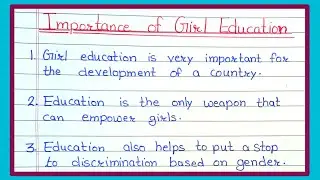 Importance of Girl Education
1. Girl education is very important for
the development of a country.
2. Education is the only weapon that
can empower girls.
3. Education also helps to put a stop
to discrimination based on gender.